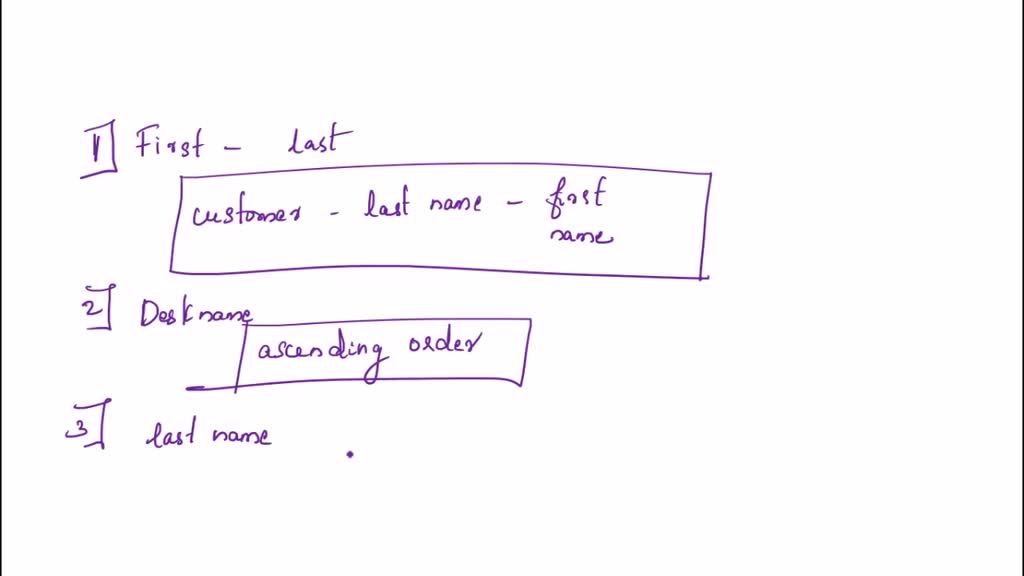 1] First - last
customer - last name - first
name
2] Desk name
ascending order
3] last name